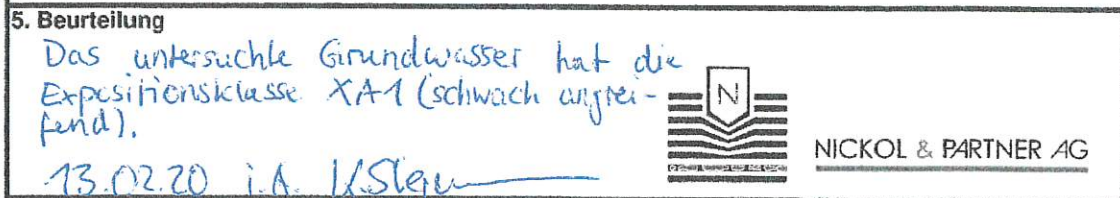 5. Beurteilung
Das untersuchte Grundwasser hat die
Expositionsklasse XA1 (schwach angrei-
fend).
N
NICKOL & PARTNER AG
13.02.20 i.A.